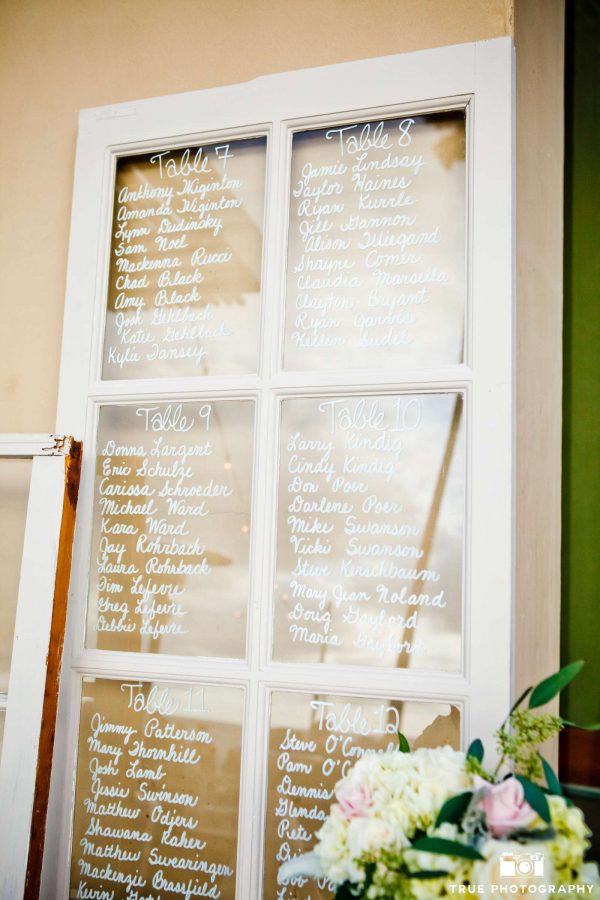 Table 7
Anthony Wiginton
Amanda Wiginton
Lynn Dudinsky
Sam Noel
Mackenna Rucci
Chad Black
Amy Black
Josh Gehlbach
Katie Gehlbach
Kylie Tansey
Table 8
Jamie Lindsay
Taylor Haines
Ryan Kurrle
Jill Gannon
Alison Wiegand
Shayne Comer
Claudia Marsella
Clayton Bryant
Ryan
Table 9
Donna Largent
Eric Schulze
Carissa Schroeder
Michael Ward
Kara Ward
Jay Rohrbach
Laura Rohrbach
Tim Lefevre
Greg Lefevre
Debbie Lefevre
Table 10
Larry Kindig
Cindy Kindig
Don Poer
Darlene Poer
Mike Swanson
Vicki Swanson
Steve Kerschbaum
Mary Jean Noland
Doug Gaylord
Maria Gaylord
Table 11
Jimmy Patterson
Mary Thornhill
Josh Lamb
Jessie Swinson
Matthew Odjers
Shawana Kaher
Matthew Swearingen
Mackenzie Brassfield
Kevin
Table 12
Steve O'Conn
Pam O'C
Dennis
Glenda
Pete
TRUE PHOTOGRAPHY